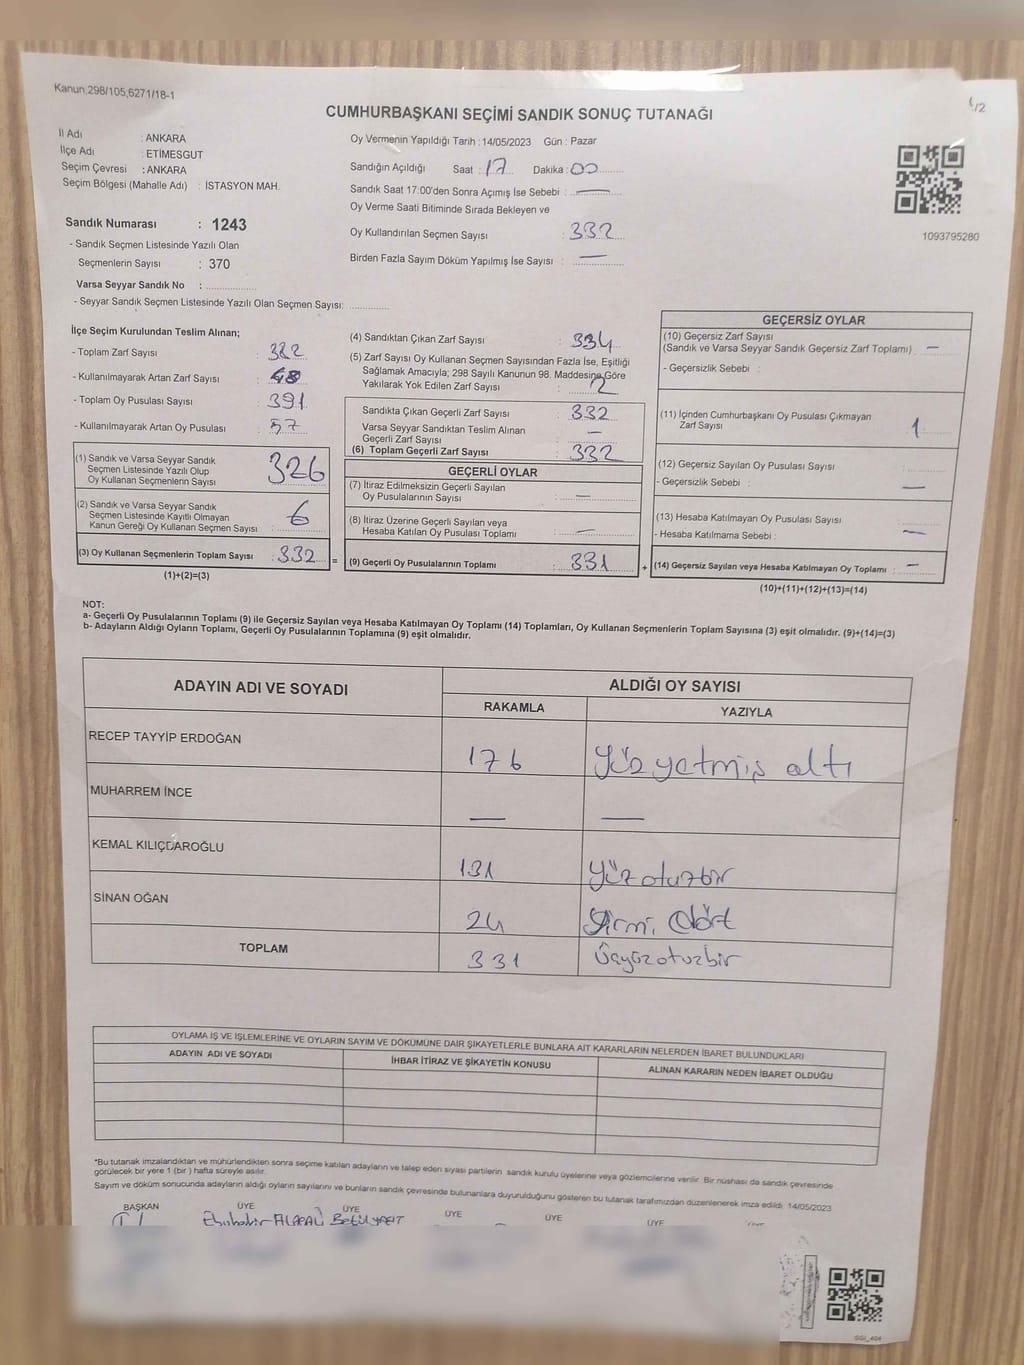 Kanun,298/105,6271/18-1
1/2
CUMHURBAŞKANI SEÇİMİ SANDIK SONUÇ TUTANAĞI
İl Adı : ANKARA
İlçe Adı : ETİMESGUT
Seçim Çevresi : ANKARA
Seçim Bölgesi (Mahalle Adı) : İSTASYON MAH.
Sandık Numarası : 1243
- Sandık Seçmen Listesinde Yazılı Olan
Seçmenlerin Sayısı : 370
Varsa Seyyar Sandık No :
- Seyyar Sandık Seçmen Listesinde Yazılı Olan Seçmen Sayısı:
Oy Vermenin Yapıldığı Tarih : 14/05/2023 Gün : Pazar
Sandığın Açıldığı Saat : 17 Dakika : 00
Sandık Saat 17:00'den Sonra Açımış İse Sebebi : —
Oy Verme Saati Bitiminde Sırada Bekleyen ve
Oy Kullandırılan Seçmen Sayısı : 332
Birden Fazla Sayım Döküm Yapılmış İse Sayısı : —
1093795280
İlçe Seçim Kurulundan Teslim Alınan;
- Toplam Zarf Sayısı : 382
- Kullanılmayarak Artan Zarf Sayısı : 48
- Toplam Oy Pusulası Sayısı : 391
- Kullanılmayarak Artan Oy Pusulası : 57
(1) Sandık ve Varsa Seyyar Sandık
Seçmen Listesinde Yazılı Olup
Oy Kullanan Seçmenlerin Sayısı 326
(2) Sandık ve Varsa Seyyar Sandık
Seçmen Listesinde Kayıtlı Olmayan
Kanun Gereği Oy Kullanan Seçmen Sayısı : 6
(3) Oy Kullanan Seçmenlerin Toplam Sayısı : 332 =
(1)+(2)=(3)
(4) Sandıktan Çıkan Zarf Sayısı : 334
(5) Zarf Sayısı Oy Kullanan Seçmen Sayısından Fazla İse, Eşitliği
Sağlamak Amacıyla; 298 Sayılı Kanunun 98. Maddesine Göre
Yakılarak Yok Edilen Zarf Sayısı : 2
Sandıkta Çıkan Geçerli Zarf Sayısı : 332
Varsa Seyyar Sandıktan Teslim Alınan
Geçerli Zarf Sayısı : —
(6) Toplam Geçerli Zarf Sayısı : 332
GEÇERLİ OYLAR
(7) İtiraz Edilmeksizin Geçerli Sayılan
Oy Pusulalarının Sayısı : —
(8) İtiraz Üzerine Geçerli Sayılan veya
Hesaba Katılan Oy Pusulası Toplamı : —
(9) Geçerli Oy Pusulalarının Toplamı : 331 +
GEÇERSİZ OYLAR
(10) Geçersiz Zarf Sayısı
(Sandık ve Varsa Seyyar Sandık Geçersiz Zarf Toplamı) : —
- Geçersizlik Sebebi :
(11) İçinden Cumhurbaşkanı Oy Pusulası Çıkmayan
Zarf Sayısı : 1
(12) Geçersiz Sayılan Oy Pusulası Sayısı :
- Geçersizlik Sebebi : —
(13) Hesaba Katılmayan Oy Pusulası Sayısı :
- Hesaba Katılmama Sebebi : —
(14) Geçersiz Sayılan veya Hesaba Katılmayan Oy Toplamı : —
(10)+(11)+(12)+(13)=(14)
NOT:
a- Geçerli Oy Pusulalarının Toplamı (9) ile Geçersiz Sayılan veya Hesaba Katılmayan Oy Toplamı (14) Toplamları, Oy Kullanan Seçmenlerin Toplam Sayısına (3) eşit olmalıdır. (9)+(14)=(3)
b- Adayların Aldığı Oyların Toplamı, Geçerli Oy Pusulalarının Toplamına (9) eşit olmalıdır.
ADAYIN ADI VE SOYADI ALDIĞI OY SAYISI
RAKAMLA YAZIYLA
RECEP TAYYİP ERDOĞAN 176 Yüz yetmiş altı
MUHARREM İNCE — —
KEMAL KILIÇDAROĞLU 131 Yüz otuzbir
SİNAN OĞAN 24 Yirmi Dört
TOPLAM 331 Üçyüzotuzbir
OYLAMA İŞ VE İŞLEMLERİNE VE OYLARIN SAYIM VE DÖKÜMÜNE DAİR ŞİKAYETLERLE BUNLARA AİT KARARLARIN NELERDEN İBARET BULUNDUKLARI
ADAYIN ADI VE SOYADI İHBAR İTİRAZ VE ŞİKAYETİN KONUSU ALINAN KARARIN NEDEN İBARET OLDUĞU
*Bu tutanak imzalandıktan ve mühürlendikten sonra seçime katılan adayların ve talep eden siyasi partilerin sandık kurulu üyelerine veya gözlemcilerine verilir. Bir nüshası da sandık çevresinde
görülecek bir yere 1 (bir ) hafta süreyle asılır.
Sayım ve döküm sonucunda adayların aldığı oyların sayılarını ve bunların sandık çevresinde bulunanlara duyurulduğunu gösteren bu tutanak tarafımızdan düzenlenerek imza edildi. 14/05/2023
BAŞKAN ÜYE ÜYE ÜYE ÜYE ÜYE